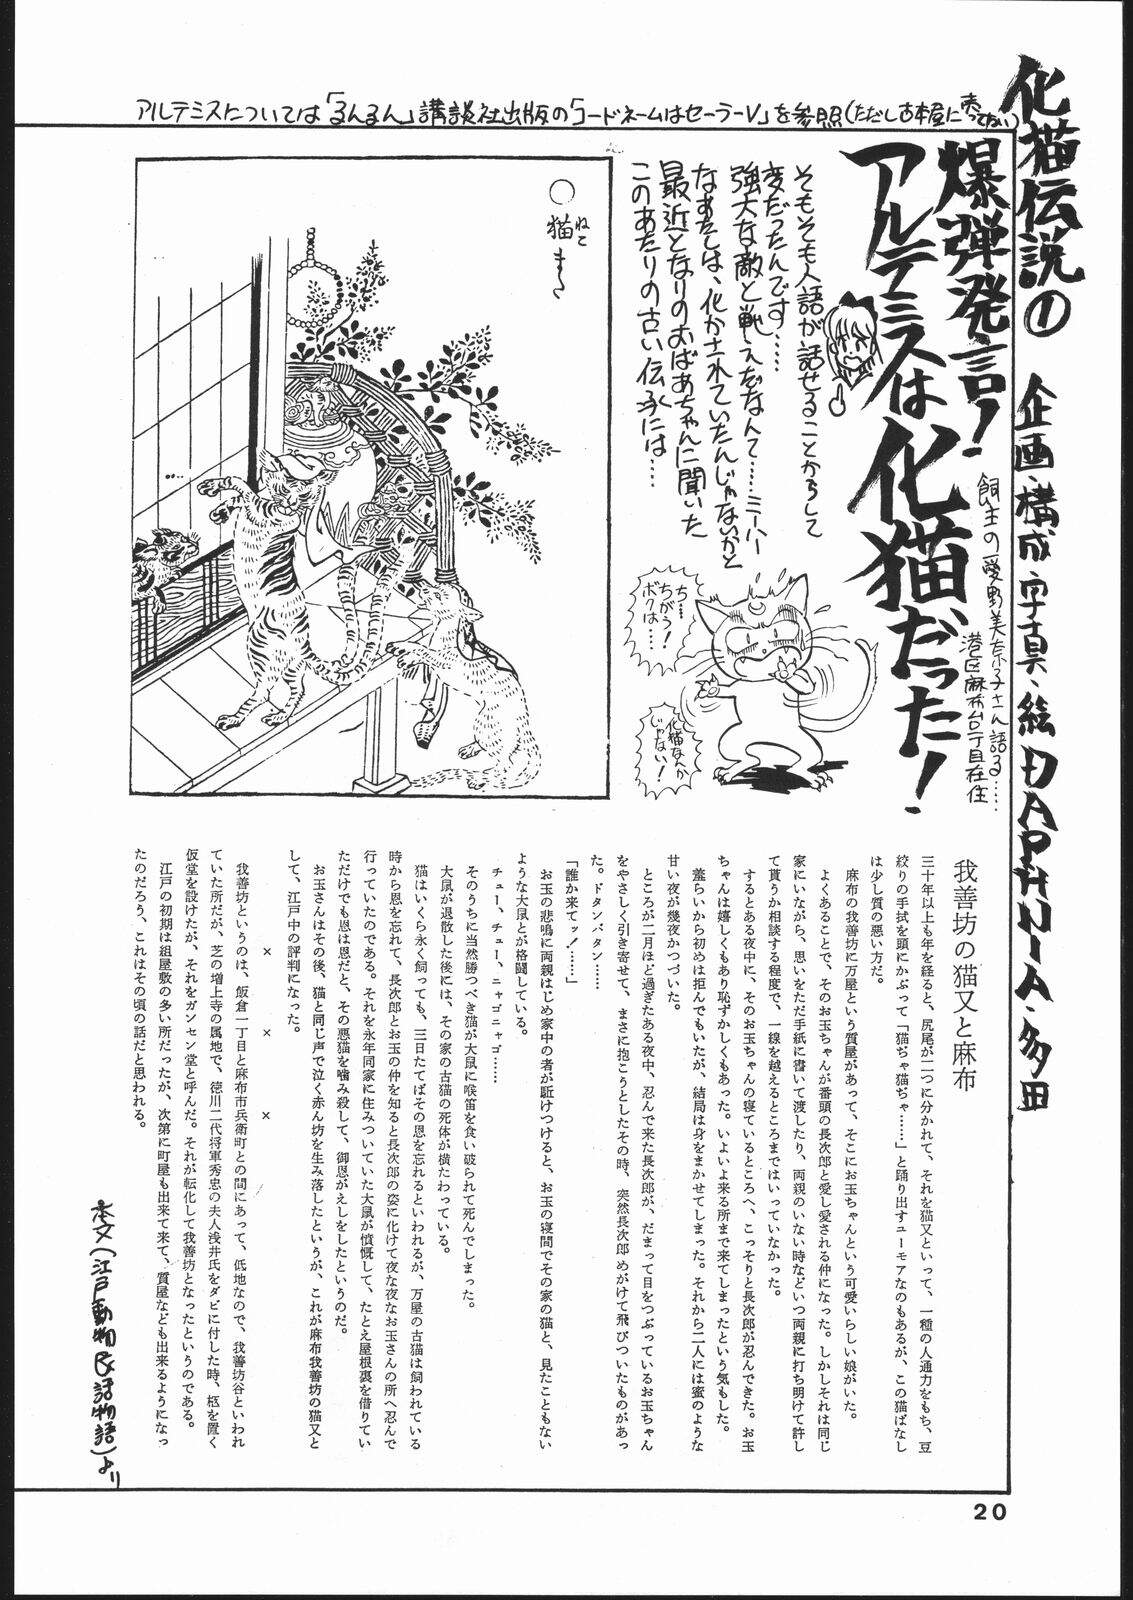 アルテミスについては「るんるん」講談社出版の「コードネームはセーラーV」を参照(ただし古本屋に売ってない)
化猫伝説の1 企画・構成・字真・絵 DAPHNIA・多田
爆弾発言！
アルテミスは化猫だった！
飼主の愛野美奈子さん語る……
港区麻布台一丁目在住
そもそも人語が話せることからして
変だったんです……
強大な敵と戦えだなんて……ミーハー
なあたしは、化かされていたんじゃないかと
最近となりのおばあちゃんに聞いた
このあたりの古い伝承には……
ち……
ちがう！
ボクは……
化猫なんか
じゃない！
○猫また
ねこ
我善坊の猫又と麻布
三十年以上も年を経ると、尻尾が二つに分かれて、それを猫又といって、一種の人通力をもち、豆
絞りの手拭を頭にかぶって「猫ぢゃ猫ぢゃ……」と踊り出すユーモアなのもあるが、この猫ばなし
は少し質の悪い方だ。
麻布の我善坊に万屋という質屋があって、そこにお玉ちゃんという可愛いらしい娘がいた。
よくあることで、そのお玉ちゃんが番頭の長次郎と愛し愛される仲になった。しかしそれは同じ
家にいながら、思いをただ手紙に書いて渡したり、両親のいない時などいつ両親に打ち明けて許し
て貰うか相談する程度で、一線を越えるところまではいっていなかった。
するとある夜中に、そのお玉ちゃんの寝ているところへ、こっそりと長次郎が忍んできた。お玉
ちゃんは嬉しくもあり恥ずかしくもあった。いよいよ来る所まで来てしまったという気もした。
羞らいから初めは拒んでもいたが、結局は身をまかせてしまった。それから二人には蜜のような
甘い夜が幾夜かつづいた。
ところが二月ほど過ぎたある夜中、忍んで来た長次郎が、だまって目をつぶっているお玉ちゃん
をやさしく引き寄せて、まさに抱こうとしたその時、突然長次郎めがけて飛びついたものがあっ
た。ドタンバタン……
「誰か来てッ！……」
お玉の悲鳴に両親はじめ家中の者が駈けつけると、お玉の寝間でその家の猫と、見たこともない
ような大鼠とが格闘している。
チュー、チュー、ニャゴニャゴ……
そのうちに当然勝つべき猫が大鼠に喉笛を食い破られて死んでしまった。
大鼠が退散した後には、その家の古猫の死体が横たわっている。
猫はいくら永く飼っても、三日たてばその恩を忘れるといわれるが、万屋の古猫は飼われている
時から恩を忘れて、長次郎とお玉の仲を知ると長次郎の姿に化けて夜な夜なお玉さんの所へ忍んで
行っていたのである。それを永年同家に住みついていた大鼠が憤慨して、たとえ屋根裏を借りてい
ただけでも恩は恩だと、その悪猫を噛み殺して、御恩がえしをしたというのだ。
お玉さんはその後、猫と同じ声で泣く赤ん坊を生み落したというが、これが麻布我善坊の猫又と
して、江戸中の評判になった。
× × ×
我善坊というのは、飯倉一丁目と麻布市兵衛町との間にあって、低地なので、我善坊谷といわれ
ていた所だが、芝の増上寺の属地で、徳川二代将軍秀忠の夫人浅井氏をダビに付した時、柩を置く
仮堂を設けたが、それをガンセン堂と呼んだ。それが転化して我善坊となったというのである。
江戸の初期は組屋敷の多い所だったが、次第に町屋も出来て来て、質屋なども出来るようになっ
たのだろう、これはその頃の話だと思われる。
本文(江戸動物民話物語)より
20